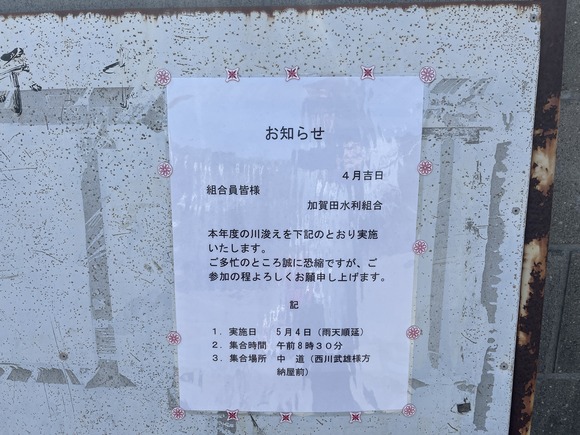 お知らせ
４月吉日
組合員皆様
加賀田水利組合
本年度の川浚えを下記のとおり実施
いたします。
ご多忙のところ誠に恐縮ですが、ご
参加の程よろしくお願申し上げます。
記
１．実施日　５月４日（雨天順延）
２．集合時間　午前８時３０分
３．集合場所　中　道（西川武雄様方
納屋前）